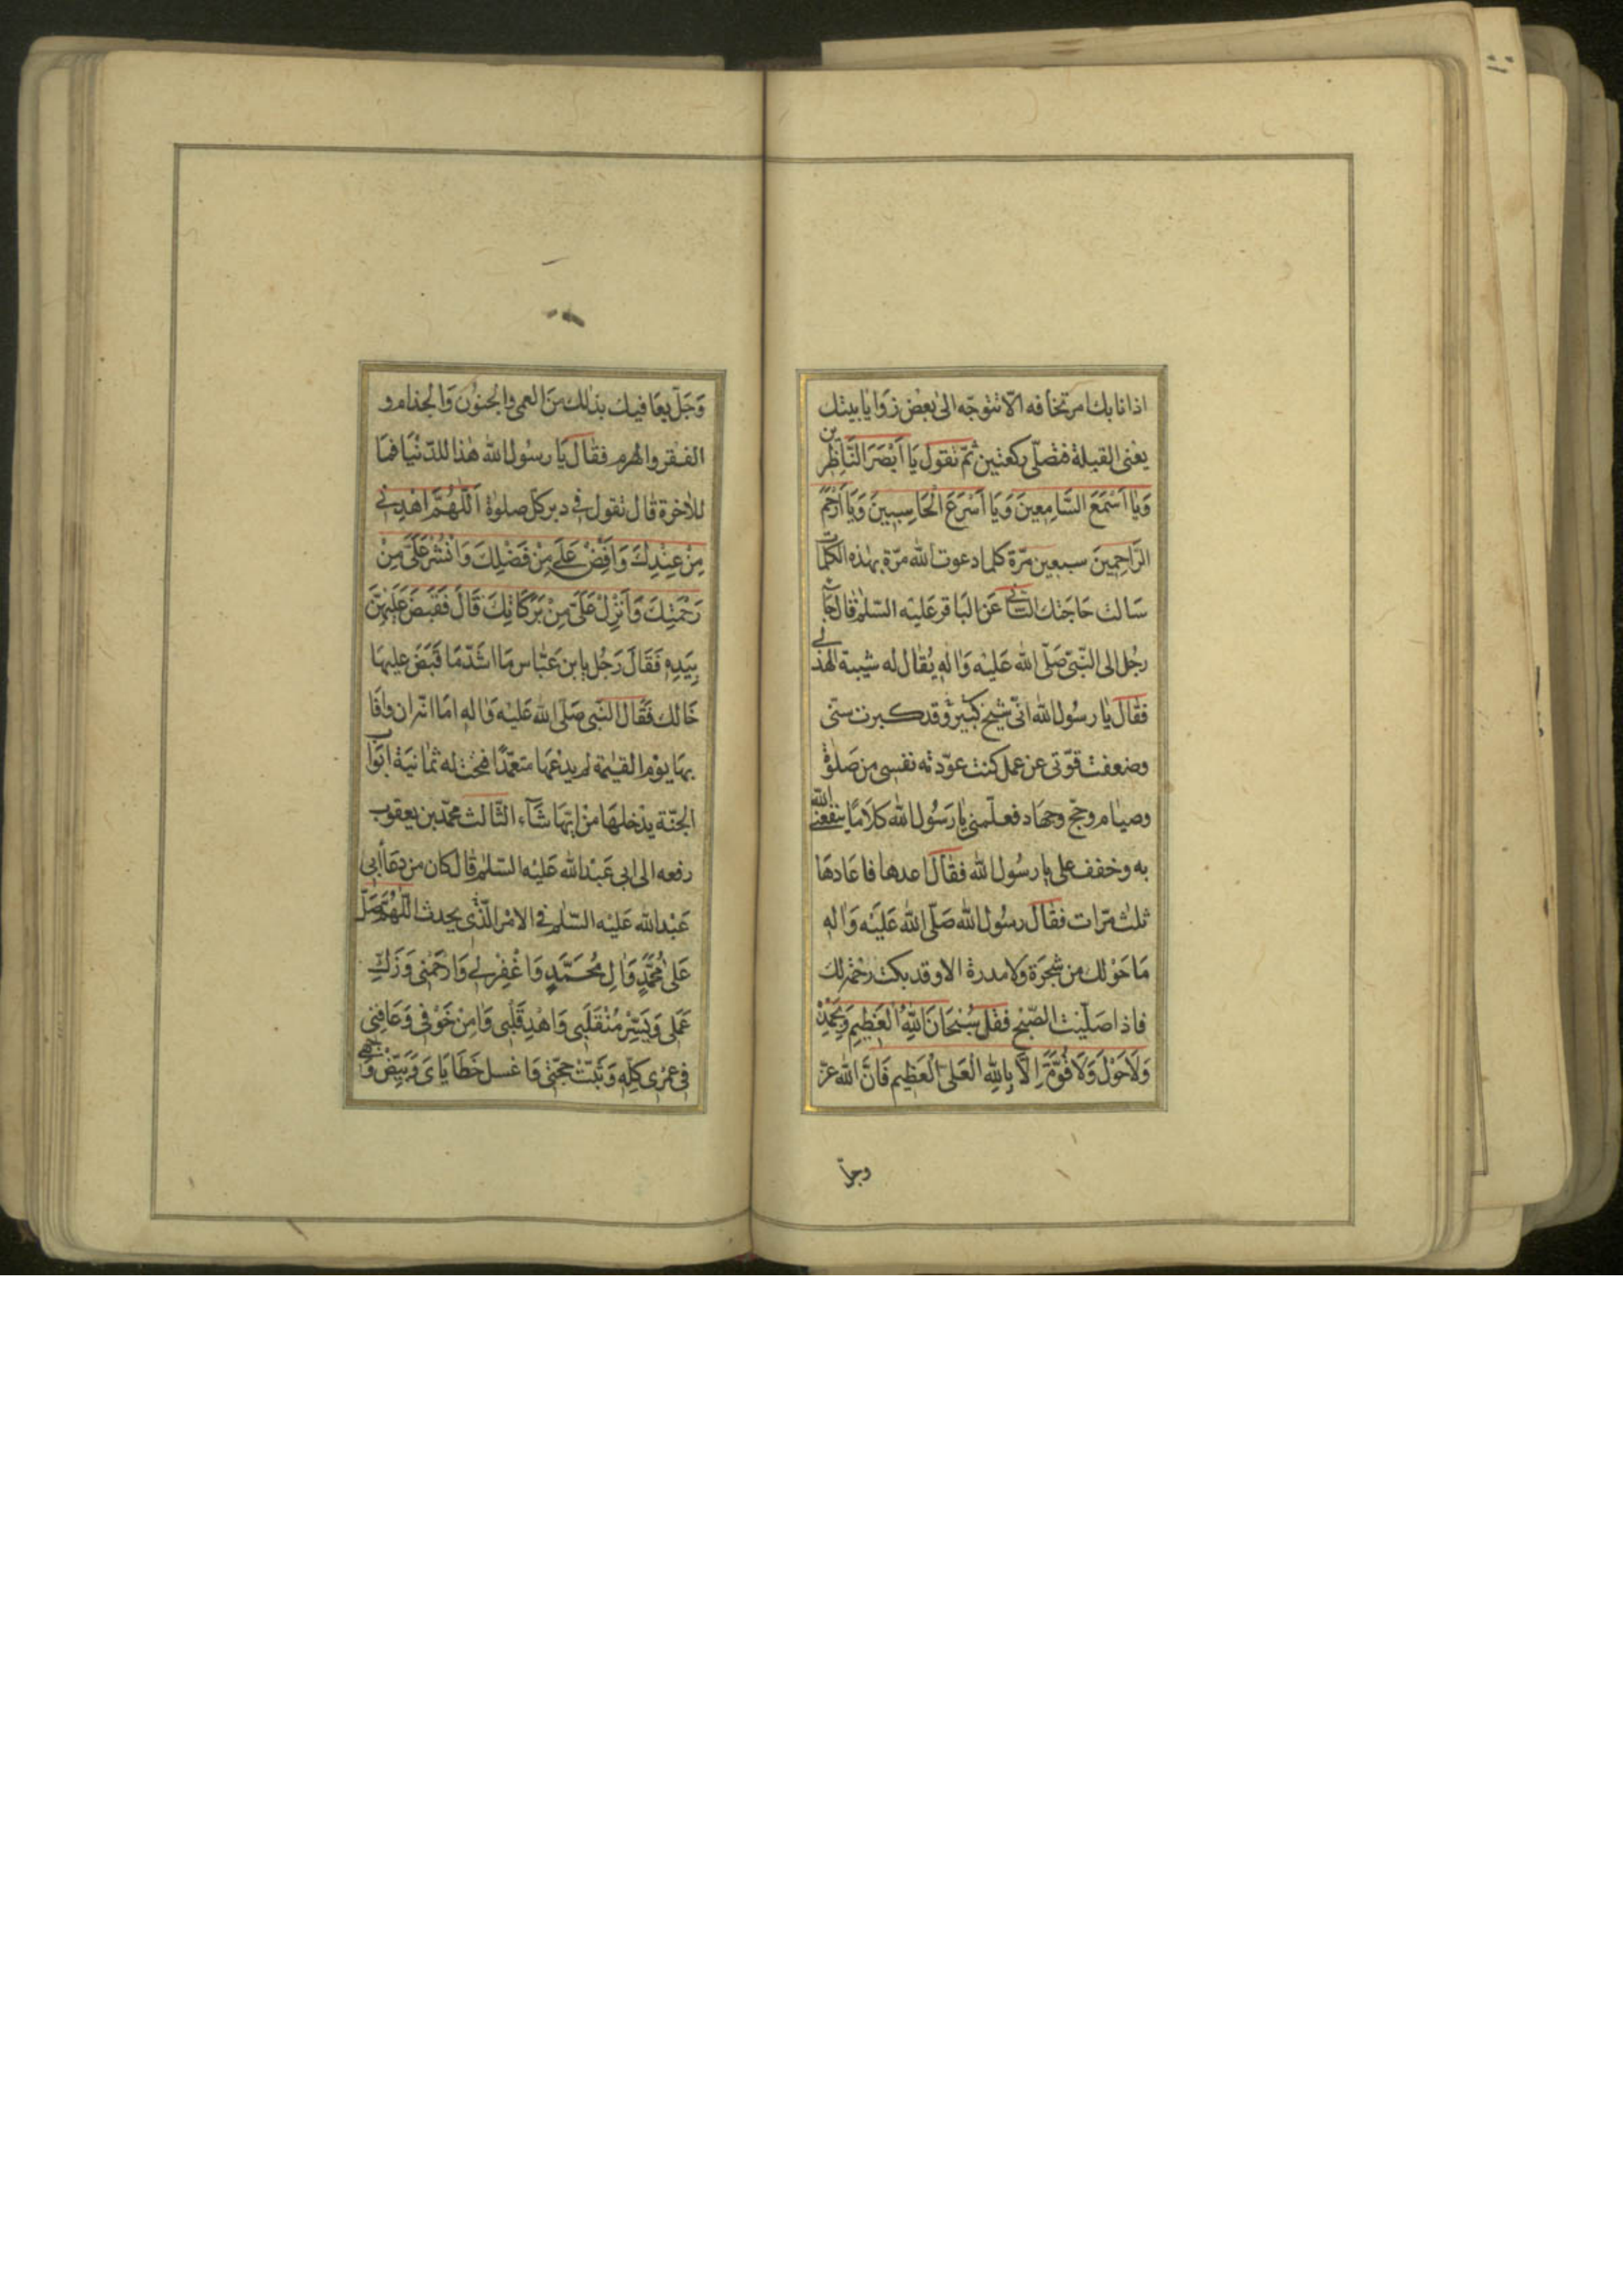 اذا نابك امر تخافه الّا تتوجّه الى بعض زوايا بيتك
يعنى القبلة فتصلّى ركعتين ثمّ تقول يَا اَبْصَرَ النَّاظِرين
وَيَا اَسْمَعَ السَّامِعينَ وَيَا اَسْرَعَ الْحَاسِبينَ وَيَا اَرْحَمَ
الرَّاحِمينَ سبعين مرّة كلما دعوت الله مرّة بهذه الكلمات
سَالت حَاجَتك الثانى عَن البَاقر عَليْه السّلم قال جاء
رجُل الى النّبىّ صَلّى الله عَليْه وَاله يُقال له شيبة الهذلى
فقال يا رسُول الله انّى شيخ كبير وقد كبرت سنّى
وضعفت قوّتى عن عمل كنت عوّدته نفسى من صَلوة
وصيام وحجّ وجهَاد فعلّمنى يا رَسُول الله كلَامًا ينفعنى الله
به وخفف على يا رسُول الله فقال اعدها فاعَادهَا
ثلث مرّات فقال رسُول الله صَلّى الله عَليْه وَاله
مَا حَوْلك من شجَرَة ولا مدرة الا وقد بكت رحمة لك
فاذا صَلّيْت الصّبْح فقل سُبْحَانَ اللّٰهِ الْعَظيمِ وَبِحَمْدِهْ
وَلَا حَوْلَ وَلَا قُوَّةَ اِلَّا بِاللّٰهِ الْعَلىِّ الْعَظيمِ فَانَّ الله عزّ
وجلّ
وَجَلّ يعَافيك بذلك منَ العمى والجنوُن وَالجذام و
الفقر والهرم فقال يَا رسُول الله هٰذا للدّنْيَا فمَا
للاٰخرة قال تقول فى دبر كلّ صلوٰة اَللّٰهُمَّ اهْدِنى
مِنْ عِنْدِكَ وَاَفِضْ عَلَىَّ مِنْ فَضْلِكَ وَانْشُرْ عَلَىَّ مِنْ
رَحْمَتِكَ وَاَنْزِلْ عَلَىَّ مِنْ بَرَكَاتِكَ قَالَ فَقَبَضَ عَلَيْهِنَّ
بِيَدِهِ فَقَالَ رَجُل يا بن عَبّاس مَا اشَدّ مَا قَبَضَ عليهَا
خَالك فَقَال النّبى صَلّى الله عَليْه وَاله امَا انّه ان وافَا
بهَا يوْم القيٰمة لم يدعْهَا متعمّدًا فتحت له ثمَانيَة ابوَاب
الجنّة يدْخلهَا منْ ايّهَا شَآءَ الثّالث محمّد بن يعقوب
رفعه الى ابى عَبْد الله عَليْه السّلم قال كان من دعَآء ابى
عَبْد الله عَليْه السّلم فى الامْر الّذى يحدث اللّٰهُمَّ صَلِّ
عَلىٰ مُحَمَّدٍ وَاٰلِ مُحَمَّدٍ وَاغْفِرْ لى وَارْحَمْنى وَزَكِّ
عَمَلى وَيَسِّرْ مُنْقَلَبى وَاهْدِ قَلْبى وَاٰمِنْ خَوْفى وَعَافِنى
فى عمْرى كلّه وَثبّتْ حجّتى وَاغسل خَطَايَاىَ وَبَيِّضْ وَجْهى